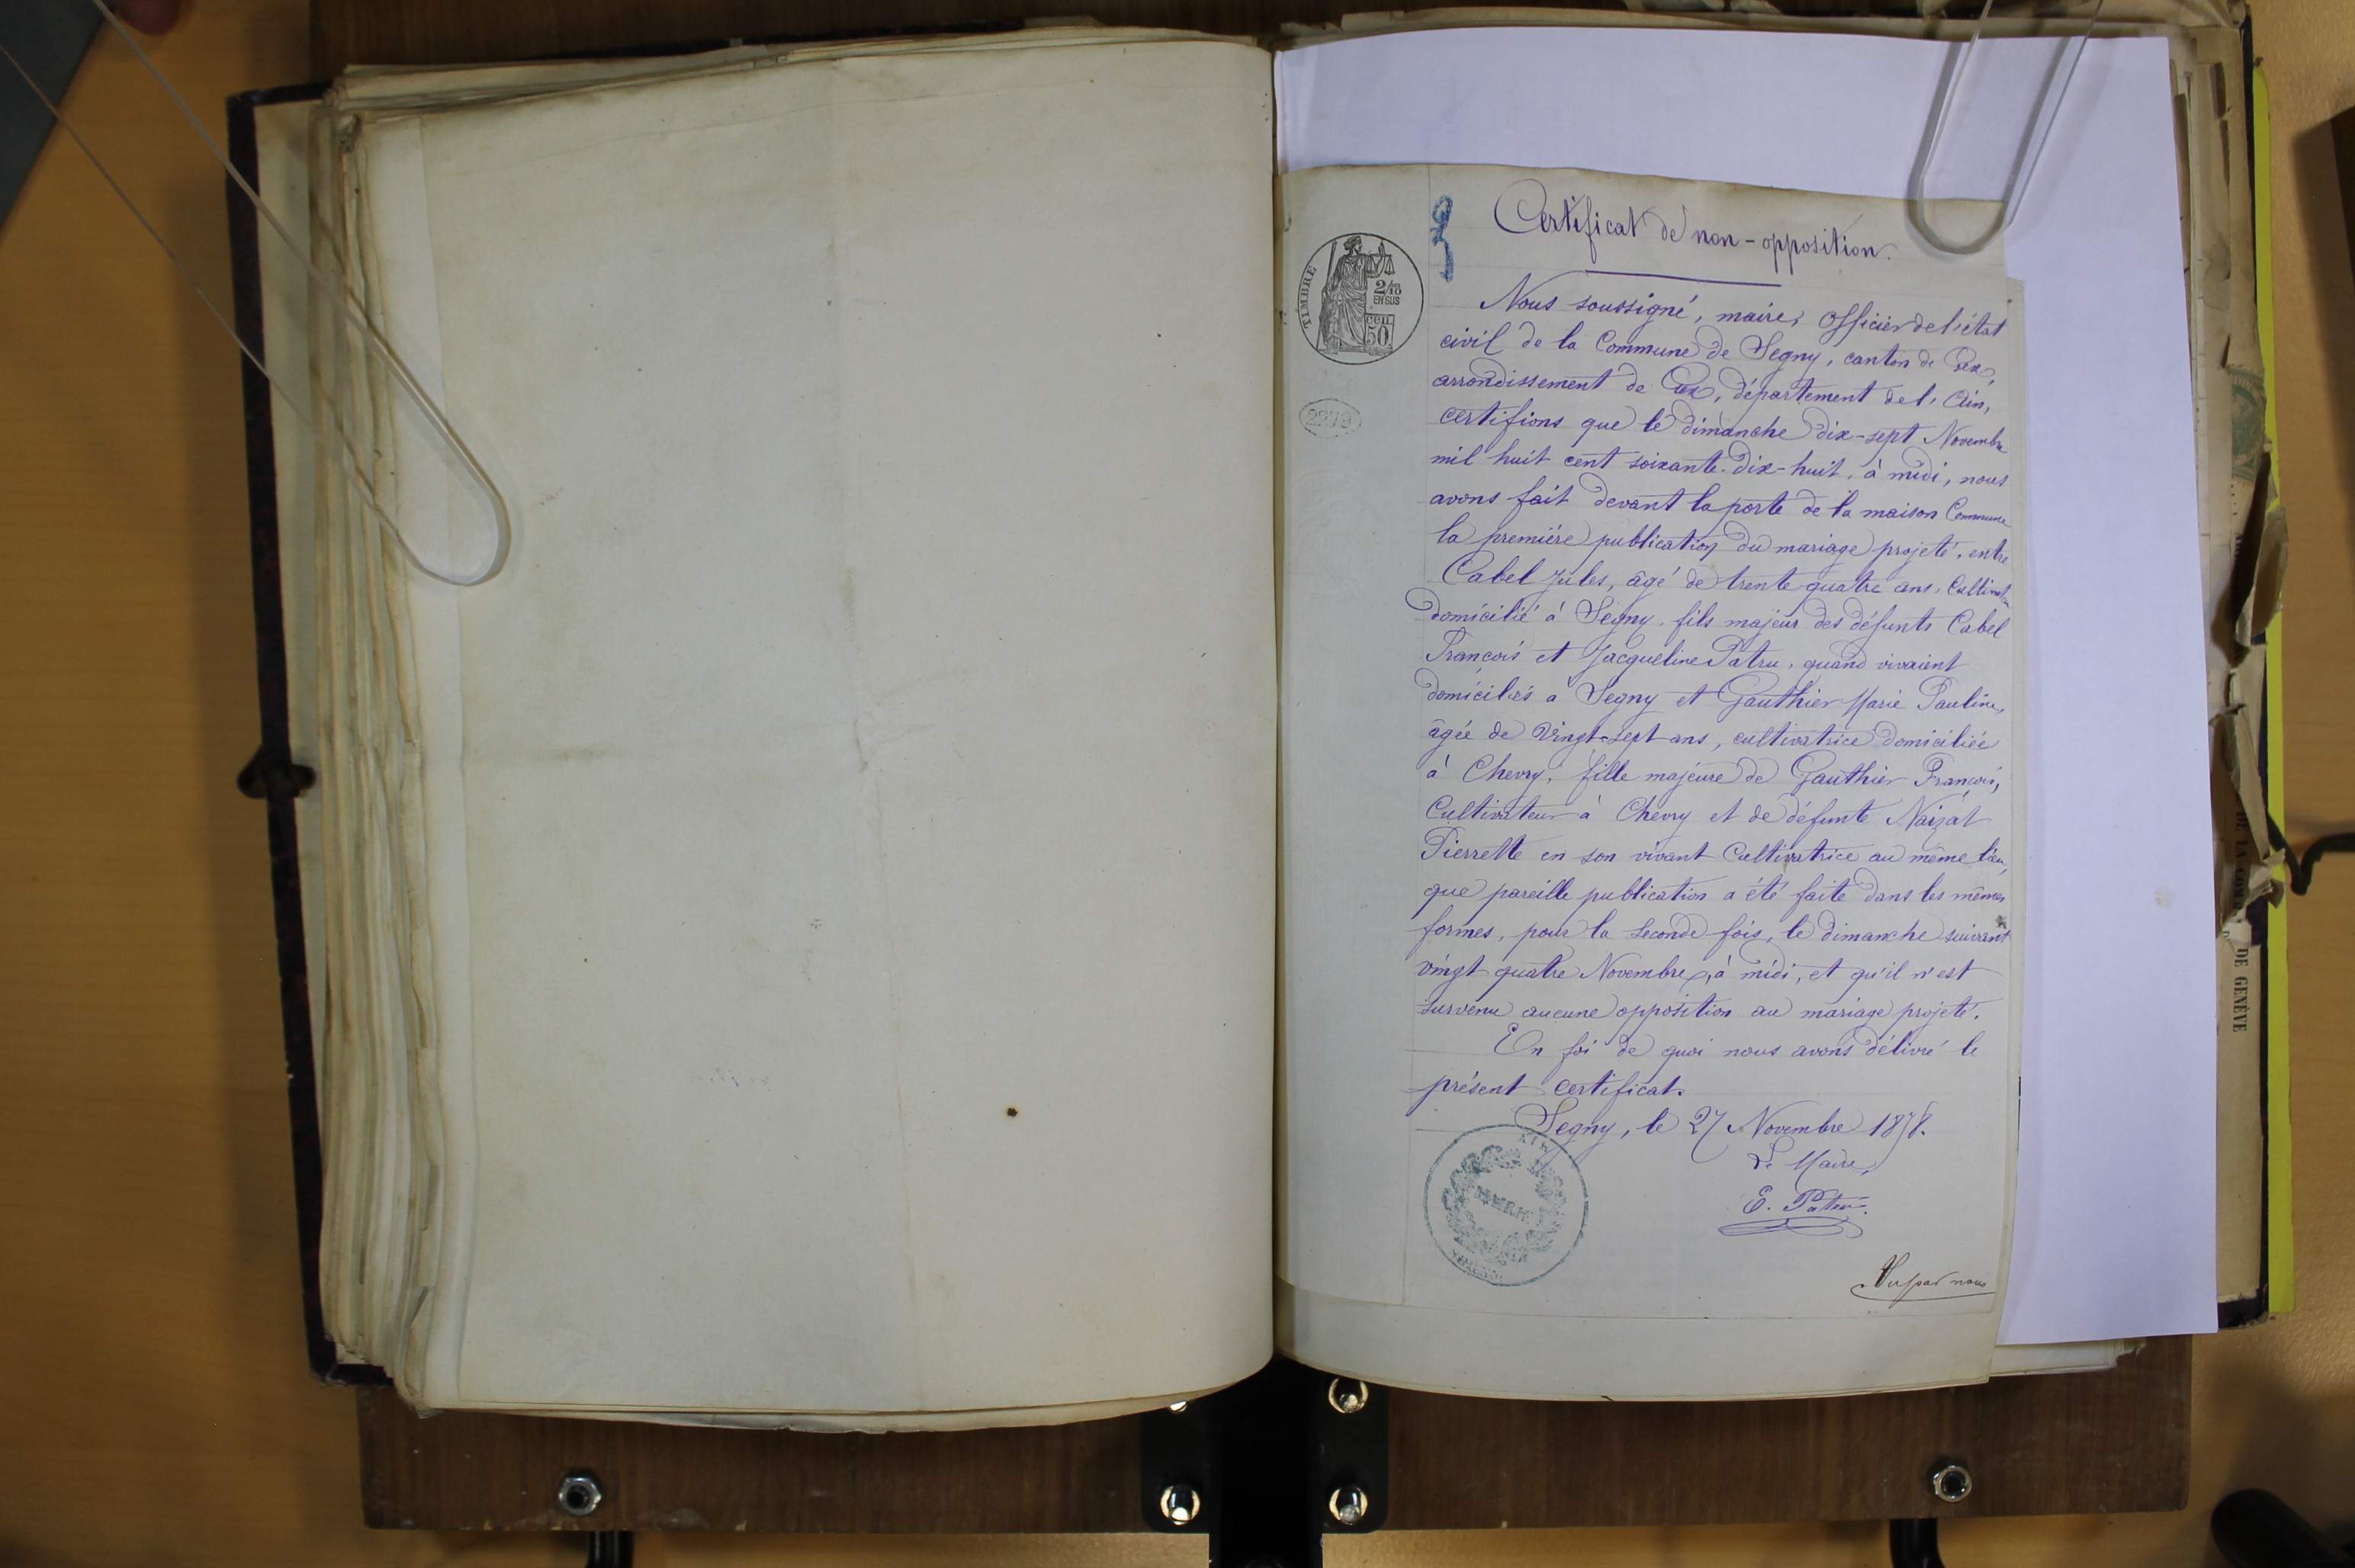 Certificat de non-opposition.
TIMBRE
2/10
EN SUS
50 CEN.
2279
Nous soussigné, maire, officier de l'état
civil de la Commune de Segny, canton de Gex,
arrondissement de Gex, département de l'Ain,
certifions que le dimanche dix-sept Novembre
mil huit cent soixante-dix-huit, à midi, nous
avons fait devant la porte de la maison Commune
la première publication du mariage projeté, entre
Cabel Jules, âgé de trente quatre ans, Cultivateur
domicilié à Segny, fils majeur des défunts Cabel
François et Jacqueline Patru, quand vivaient
domiciliés à Segny et Gauthier Marie Pauline,
âgée de Vingt-sept ans, cultivatrice domiciliée
à Chevry, fille majeure de Gauthier François,
Cultivateur à Chevry et de défunte Naizat
Pierrette en son vivant Cultivatrice au même lieu,
que pareille publication a été faite dans les mêmes
formes, pour la seconde fois, le dimanche suivant
vingt quatre Novembre, à midi, et qu'il n'est
survenu aucune opposition au mariage projeté.
En foi de quoi nous avons délivré le
présent certificat.
Segny, le 27 Novembre 1878.
Le Maire,
E. Patru.
Vu par nous
DE GENÈVE